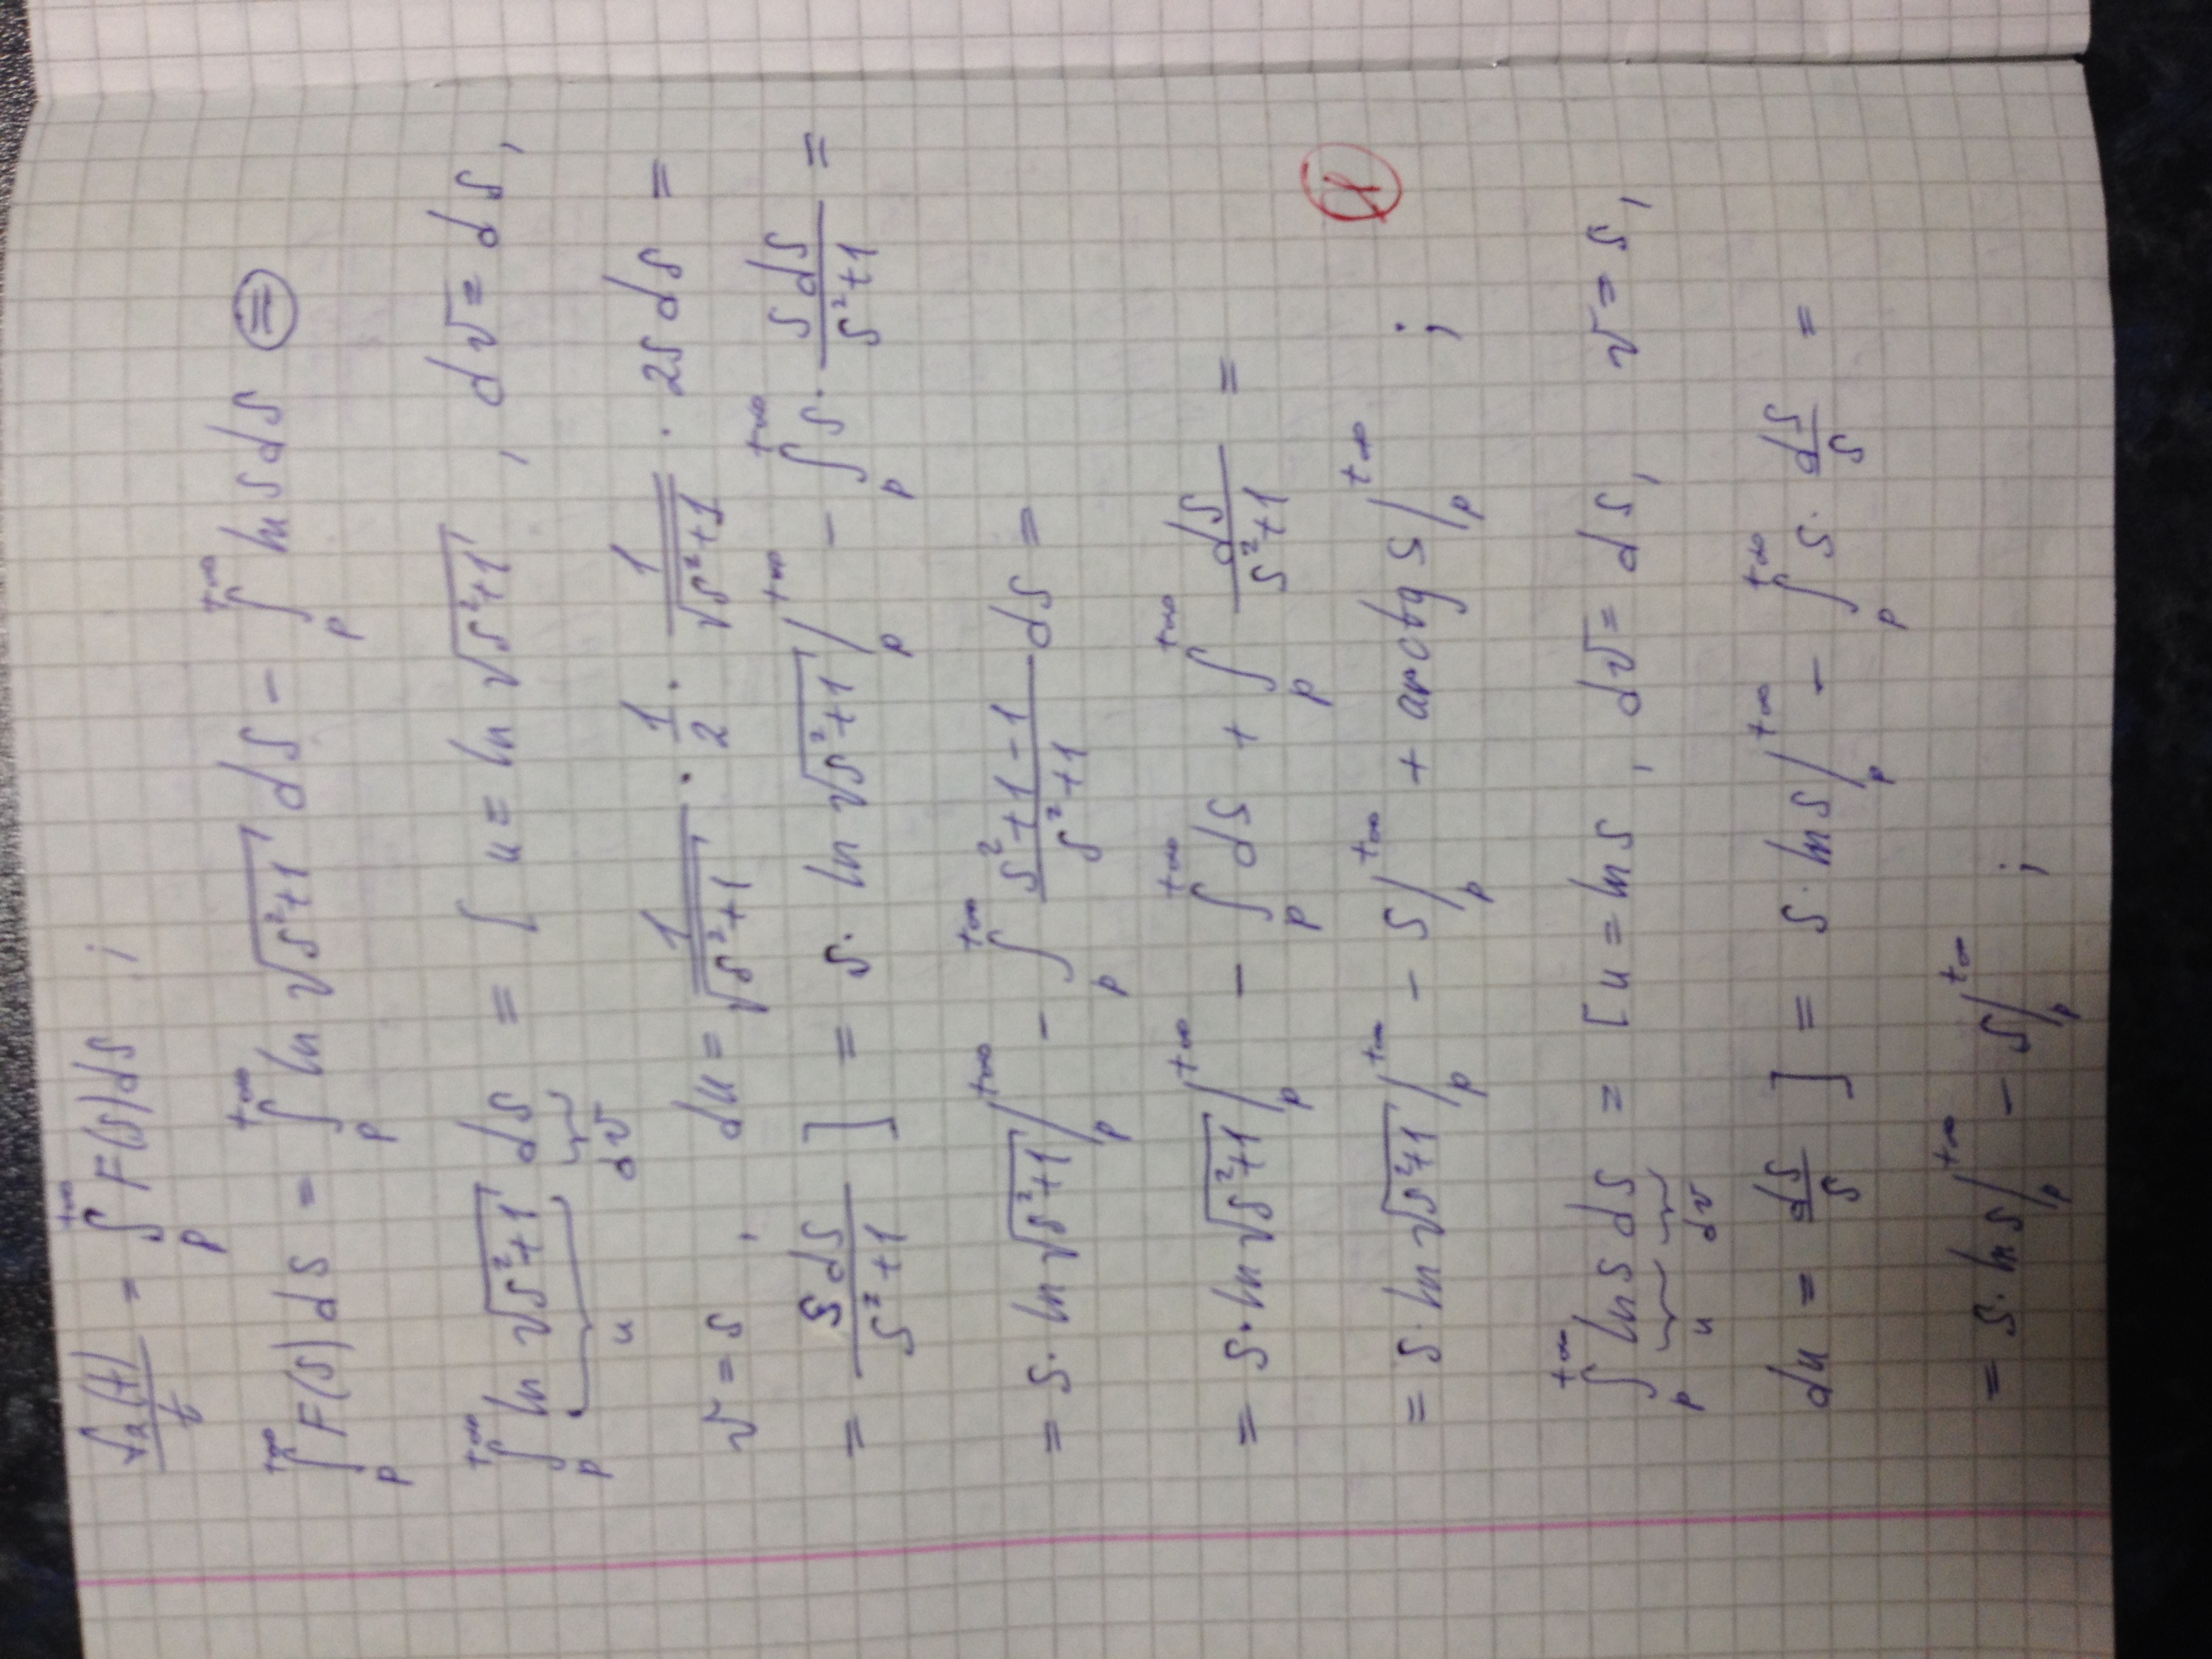 f₂(t)/t = ∫ₚ^{+∞} F(s)ds ;
∫ₚ^{+∞} F(s)ds = ∫ₚ^{+∞} ln √(s²+1) ds − ∫ₚ^{+∞} ln s ds ⊜
∫ₚ^{+∞} ln √(s²+1) ds = [ u = ln √(s²+1) , dv = ds,
u dv
v = s , du = 1/√(s²+1) · 1/2 · 1/√(s²+1) · 2s ds =
= s ds/(s²+1) ] = s · ln √(s²+1) |ₚ^{+∞} − ∫ₚ^{+∞} s · s ds/(s²+1) =
= s · ln √(s²+1) |ₚ^{+∞} − ∫ₚ^{+∞} (s²+1−1)/(s²+1) ds =
= s · ln √(s²+1) |ₚ^{+∞} − ∫ₚ^{+∞} ds + ∫ₚ^{+∞} ds/(s²+1) =
= s · ln √(s²+1) |ₚ^{+∞} − s |ₚ^{+∞} + arctg s |ₚ^{+∞} ;
∫ₚ^{+∞} ln s ds = [ u = ln s , dv = ds, v = s,
u dv
du = ds/s ] = s · ln s |ₚ^{+∞} − ∫ₚ^{+∞} s · ds/s =
= s · ln s |ₚ^{+∞} − s |ₚ^{+∞} ;